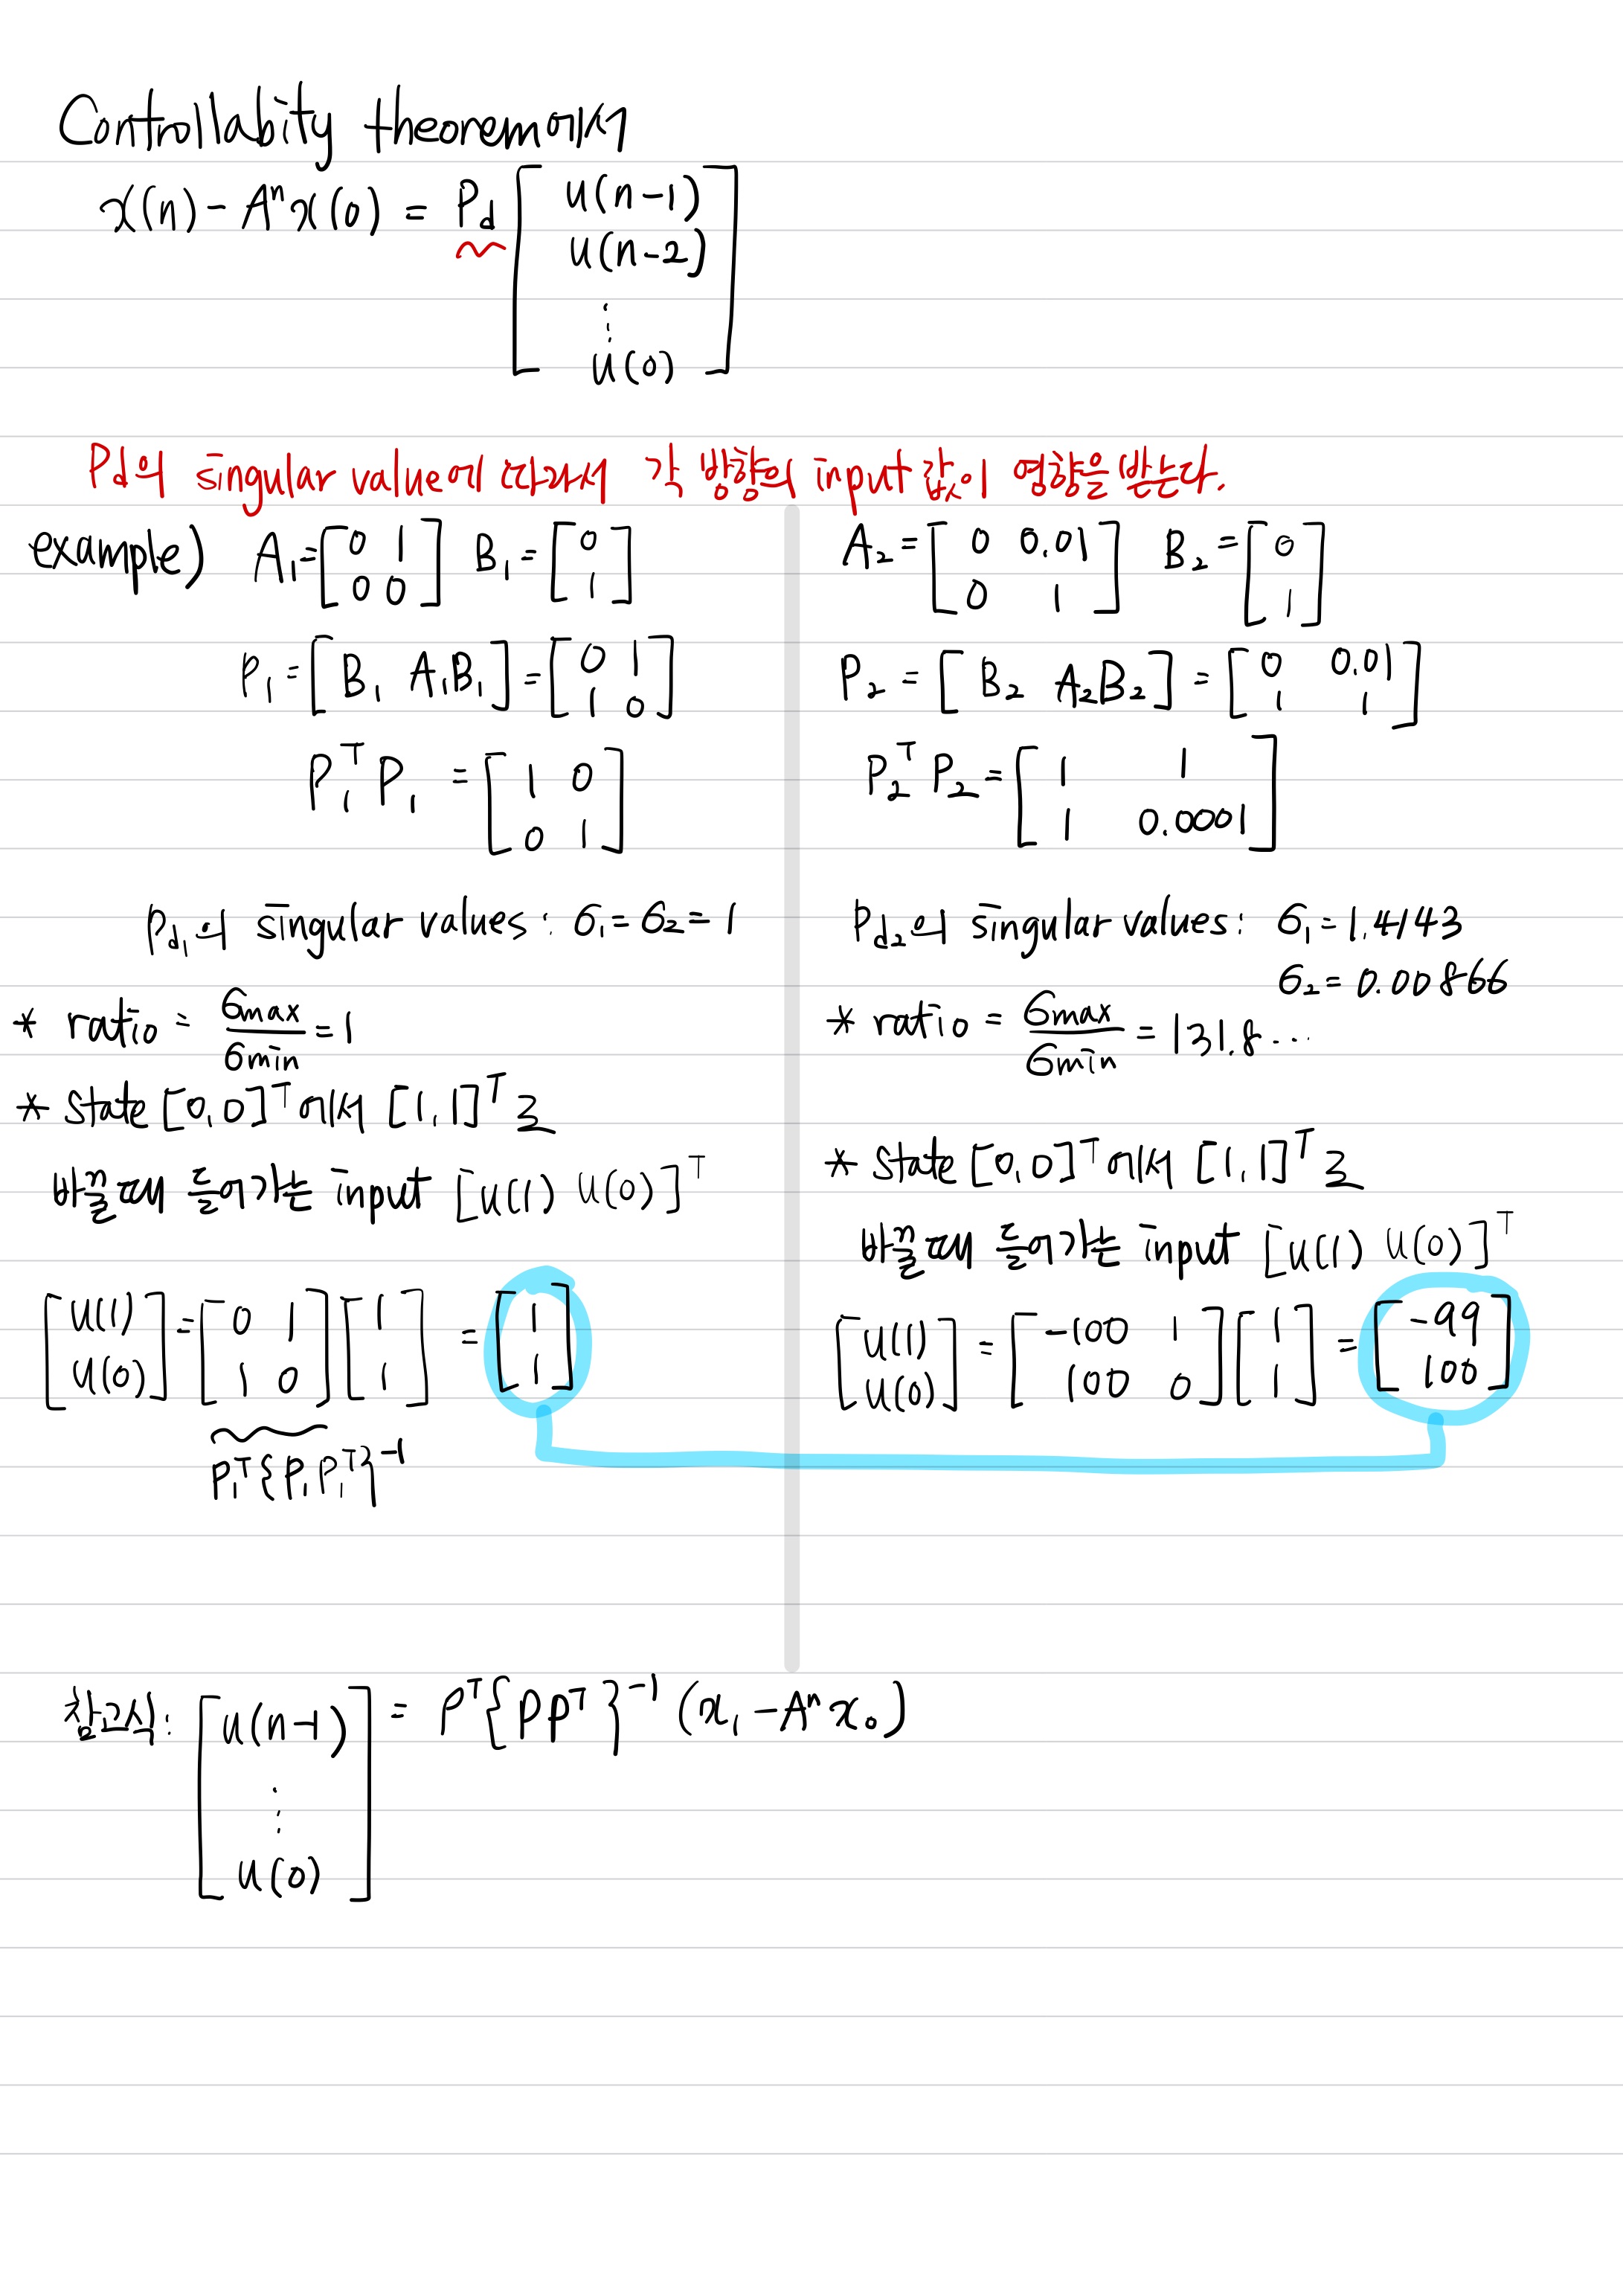 Controllability theorem에서
x(n) - Aⁿx(0) = Pd [ u(n-1)
u(n-2)
⋮
u(0) ]
Pd의 singular value에 따라서 각 방향의 input 값이 영향을 받는다.
example) A₁ = [ 0 1
0 0 ] B₁ = [ 0
1 ]
P₁ = [ B₁ A₁B₁ ] = [ 0 1
1 0 ]
P₁ᵀ P₁ = [ 1 0
0 1 ]
Pd₁의 singular values: σ₁ = σ₂ = 1
* ratio = σmax / σmin = 1
* state [0, 0]ᵀ에서 [1, 1]ᵀ로
바꿀때 들어가는 input [u(1) u(0)]ᵀ
[ u(1)
u(0) ] = [ 0 1
1 0 ] [ 1
1 ] = [ 1
1 ]
P₁ᵀ{P₁P₁ᵀ}⁻¹
A₂ = [ 0 0.01
0 1 ] B₂ = [ 0
1 ]
P₂ = [ B₂ A₂B₂ ] = [ 0 0.01
1 1 ]
P₂ᵀ P₂ = [ 1 1
1 0.0001 ]
Pd₂의 singular values: σ₁ = 1.4143
σ₂ = 0.00866
* ratio = σmax / σmin = 131.8...
* state [0, 0]ᵀ에서 [1, 1]ᵀ로
바꿀때 들어가는 input [u(1) u(0)]ᵀ
[ u(1)
u(0) ] = [ -100 1
100 0 ] [ 1
1 ] = [ -99
100 ]
참고식: [ u(n-1)
⋮
u(0) ] = Pᵀ{PPᵀ}⁻¹ (x₁ - Aⁿx₀)